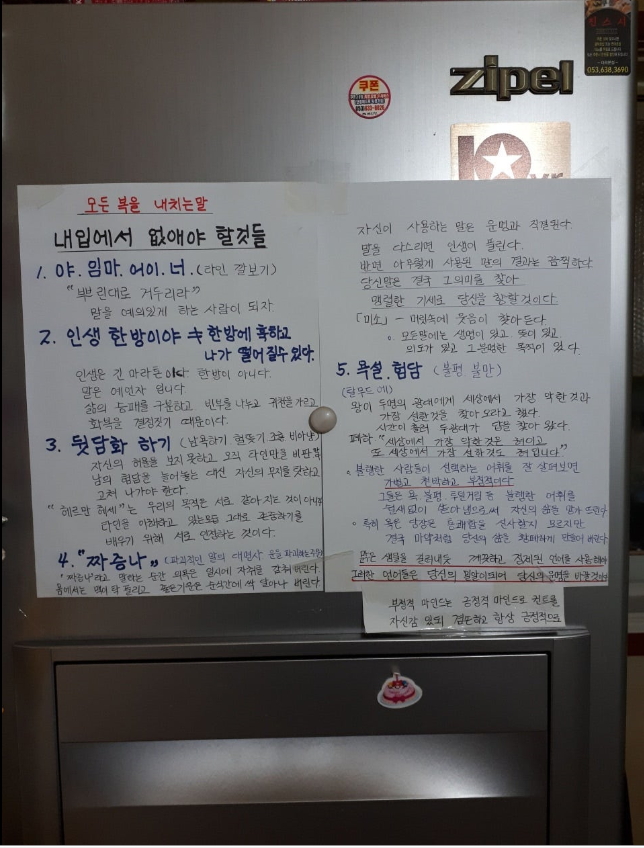 zipel
쿠폰
053.638.3690
10
모든 복을 내치는말
내입에서 없애야 할것들
1. 야. 임마. 어이. 너. (타인 깔보기)
"뿌린대로 거두리라"
말을 예의있게 하는 사람이 되자
2. 인생 한방이야 한방에 훅하고
나가 떨어질수 있다.
인생은 긴 마라톤이다 한방이 아니다.
말은 예언자 입니다
삶의 승패를 구분하고 빈부를 나누고 귀천을 가르고
화복을 결정짓기 때문이다.
3. 뒷담화 하기 (남욕하기 험뜯기 조롱 비아냥)
자신의 허물을 보지 못하고 오직 타인만을 비판
남의 험담을 늘어놓는 대신 자신의 무지를 탓하고
고쳐 나가야 한다.
"헤르만 헤세"는 우리의 목적은 서로 같아지는 것이 아니라
타인을 이해하고 있는모습 그대로 존중하기를
배우기 위해 서로 인정하는 것이다.
4. "짜증나" (파괴적인 말의 대명사 운을 파괴하는주범)
"짜증나"라고 말하는 순간 의욕은 일시에 자취를 감춰버린다
몸에서는 맥이 탁 풀리고 좋은기운은 순식간에 싹 달아나 버린다
자신이 사용하는 말은 운명과 직결된다.
말을 다스리면 인생이 풀린다.
반면 아무렇게 사용된 말의 결과는 끔찍하다
당신말은 결국 그의미를 찾아
맹렬한 기세로 당신을 찾을것이다
「미소」- 마음속에 웃음이 찾아 든다
모든말에는 생명이 있고. 뜻이 있고.
의도가 있고 그분명한 목적이 있다.
5. 욕설. 험담 (불평 불만)
(탈무드 에)
왕이 두명의 광대에게 세상에서 가장 악한 것과
가장 선한것을 찾아 오라고 했다.
시간이 흘러 두광대가 답을 찾아 왔다.
"세상에서 가장 악한것은 혀이고
또 세상에서 가장 선한것도 혀입니다"
불행한 사람들이 선택하는 어휘를 잘 살펴보면
가볍고 천박하고 부정적이다
그들은 욕. 불평. 투덜거림 등 불행한 어휘를
쉴새없이 쏟아냄으로써 자신의 삶을 갉아 먹는다
특히 욕은 당장은 통쾌함을 선사할지 모르지만
결국 마약처럼 당신의 삶을 황폐하게 만들어 버린다
맑은 샘물을 길어내듯 깨끗하고 정제된 언어를 사용해야
그러한 언어들은 당신의 말이되며 당신의 운명을 바꿀것이다
부정적 마인드는 긍정적 마인드로 컨트롤
자신감 있되 겸손하고 항상 긍정적으로